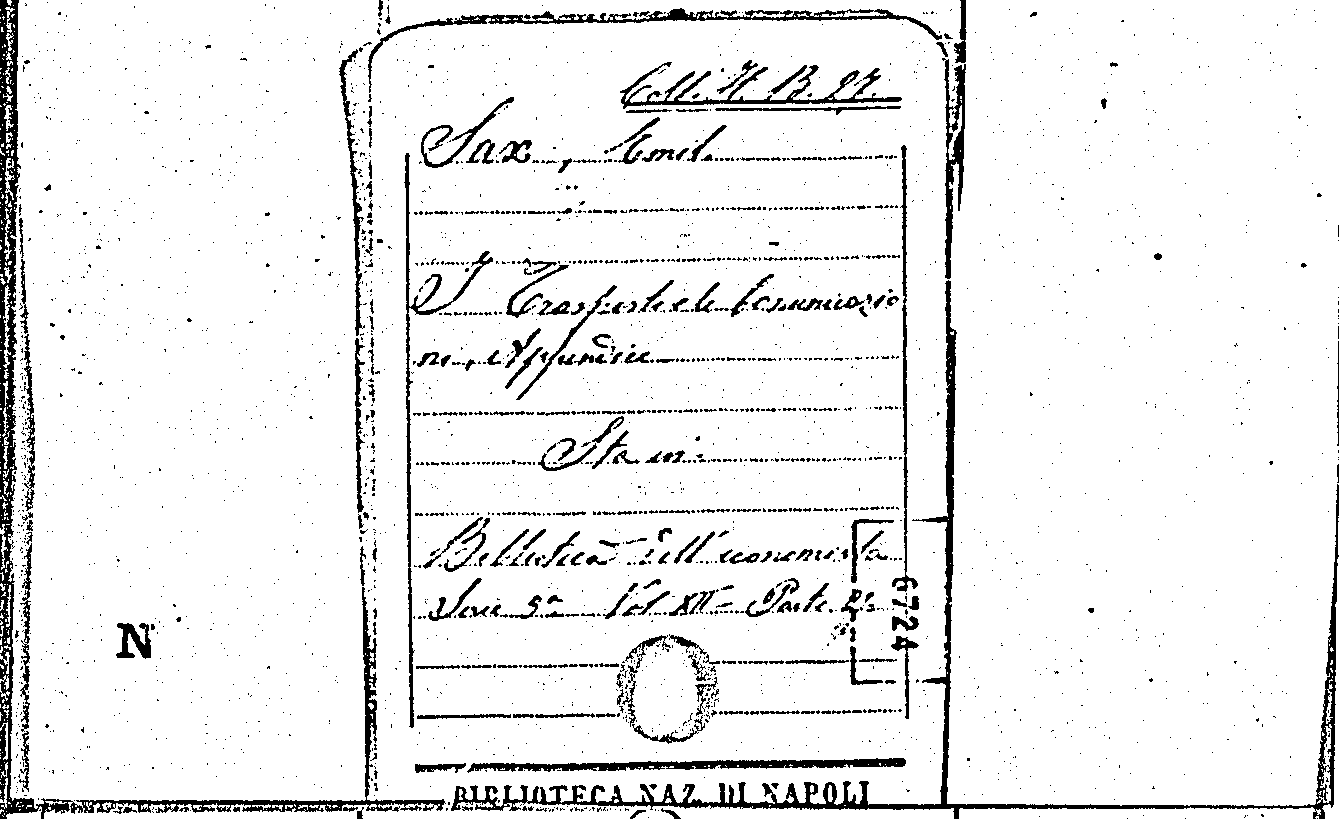 Coll. It. B. 27.
Sax, Emil.
I Trasporti e le Comunicazio
ni, Appendice
Sta in:
Biblioteca dell'economista
Serie 3ª Vol XII- Parte 2ª
6724
N
BIBLIOTECA NAZ. DI NAPOLI